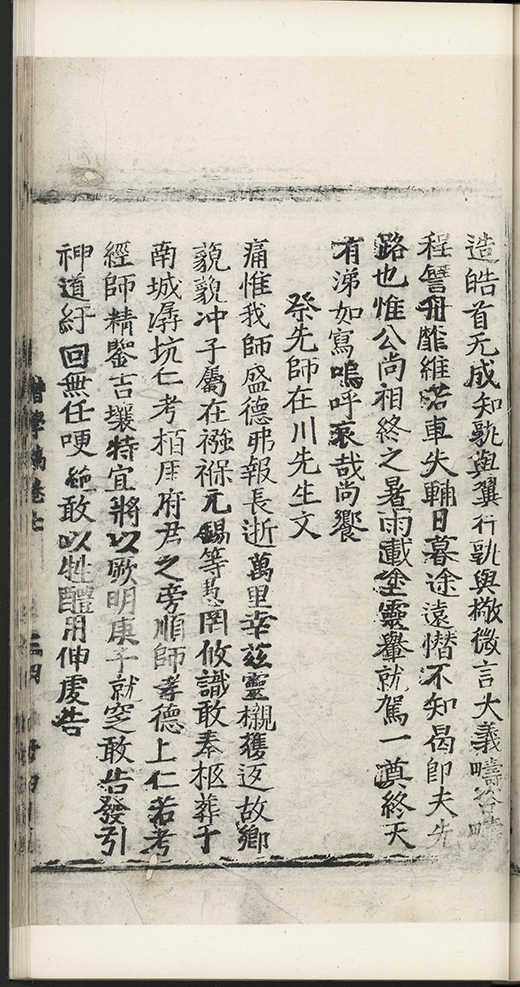 造皓首无成知孰與翼行孰與檢微言大義疇咨疇
程譬舟靡維若車失輔日暮途遠憯不知曷卽夫先
路也惟公尚相終之暑雨載塗靈轝就駕一奠終天
有涕如寫嗚呼哀哉尚饗
祭先師在川先生文
痛惟我師盛德弗報長逝萬里幸兹靈櫬獲返故鄉
藐藐冲子屬在襁褓元錫等愚罔攸識敢奉柩葬于
南城潺坑仁考栢厓府君之旁順師孝德上仁若考
經師精鑒吉壤特宜將以厥明庚午就窆敢告發引
神道紆回無任哽絶敢以牲醴用伸虔告
潛學稿卷七